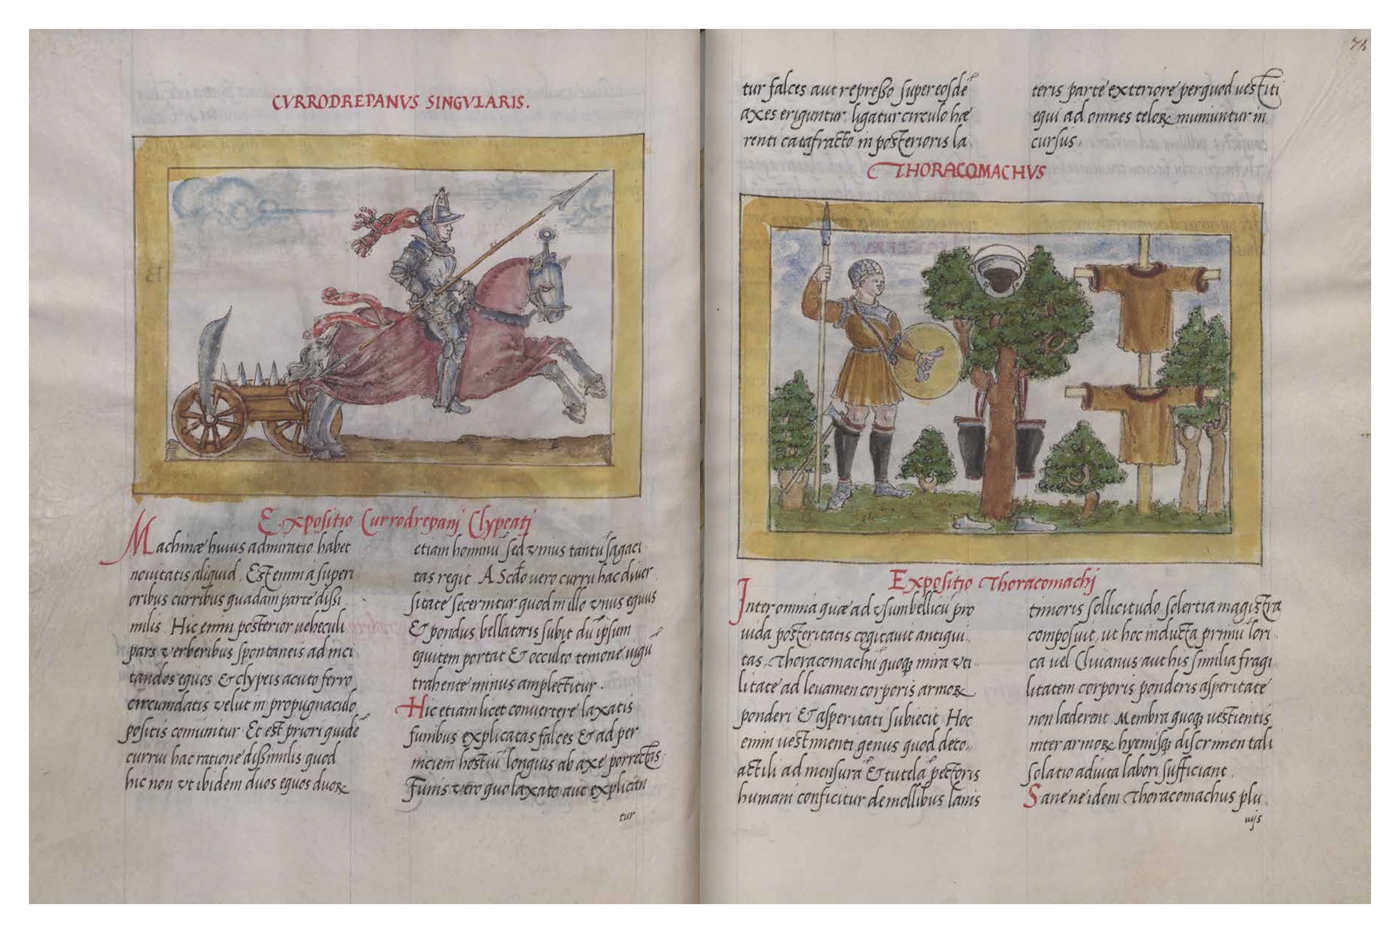 CVRRODREPANVS SINGVLARIS.
Expositio Currodrepani Clypeati
Machinæ huius admiratio habet
nouitatis aliquid. Est enim a superi
oribus curribus quadam parte dissi
milis. Hic enim posterior uehiculi
pars verberibus spontaneis ad inci
tandos equos & clypeis acuto ferro
circumdatis velut in propugnaculo
positis comunitur. Et est priori quidē
currui hac ratione dissimilis quod
hic non vt ibidem duos equos duoꝝ
etiam hominū sed vnius tantū sagaci
tas regit. A Scd̄o vero curru hac diuer
sitate secernitur quod in illo vnus equus
& pondus bellatoris subit dū ipsum
equitem portat & occulto temone iugū
trahente minus amplectitur.
Hic etiam licet conuertere laxatis
funibus explicatas falces & ad per
niciem hostiū longius ab axe porrectas
Funis vero quo laxato aut explican
tur
74
tur falces aut represso super eosdē
axes eriguntur, ligatur circulo hæ
renti catafracto in posterioris la
teris parte exteriore per quod uestiti
equi ad omnes teloꝝ muniuntur in
cursus.
THORACOMACHVS
Expositio Thoracomachi
Inter omnia quæ ad vsum bellicū pro
uida posteritatis cogitauit antiqui
tas, Thoracomachū quoqꝫ mira vti
litate ad leuamen corporis armoꝝ
ponderi & asperitati subiecit Hoc
enim uestimenti genus quod de co
actili ad mensurā & tutelā pectoris
humani conficitur de mollibus lanis
timoris sollicitudo solertia magistra
composuit, ut hoc inducta primū lori
ca uel Cliuanus aut his similia fragi
litatem corporis ponderis asperitate
non læderent Membra quoqꝫ uestientis
inter armoꝝ hyemisqꝫ discrimen tali
solatio adiuta labori sufficiant.
Sane ne idem Thoracomachus plu
uijs